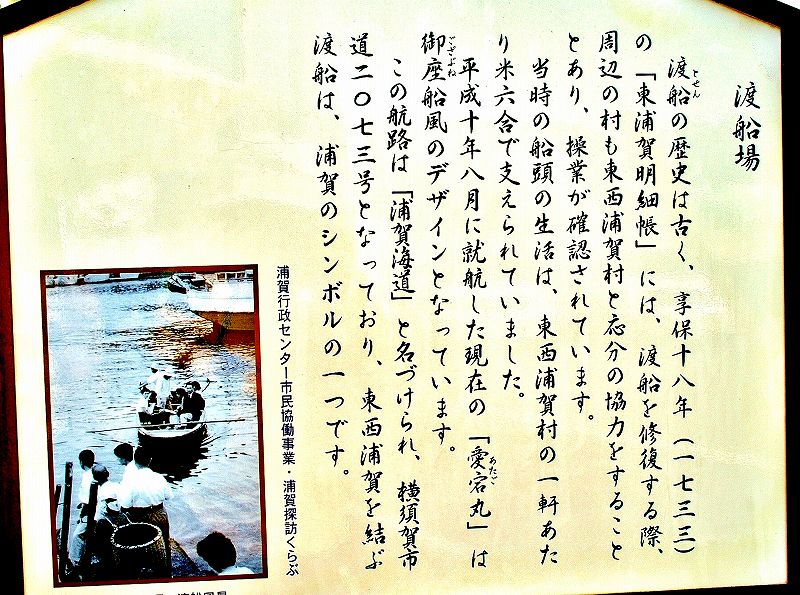 渡船場
渡船の歴史は古く、享保十八年（一七三三）
とせん
の「東浦賀明細帳」には、渡船を修復する際、
周辺の村も東西浦賀村と応分の協力をすること
とあり、操業が確認されています。
当時の船頭の生活は、東西浦賀村の一軒あた
り米六合で支えられていました。
平成十年八月に就航した現在の「愛宕丸」は
あたご
御座船風のデザインとなっています。
ござぶね
この航路は「浦賀海道」と名づけられ、横須賀市
道二〇七三号となっており、東西浦賀を結ぶ
渡船は、浦賀のシンボルの一つです。
浦賀行政センター市民協働事業・浦賀探訪くらぶ